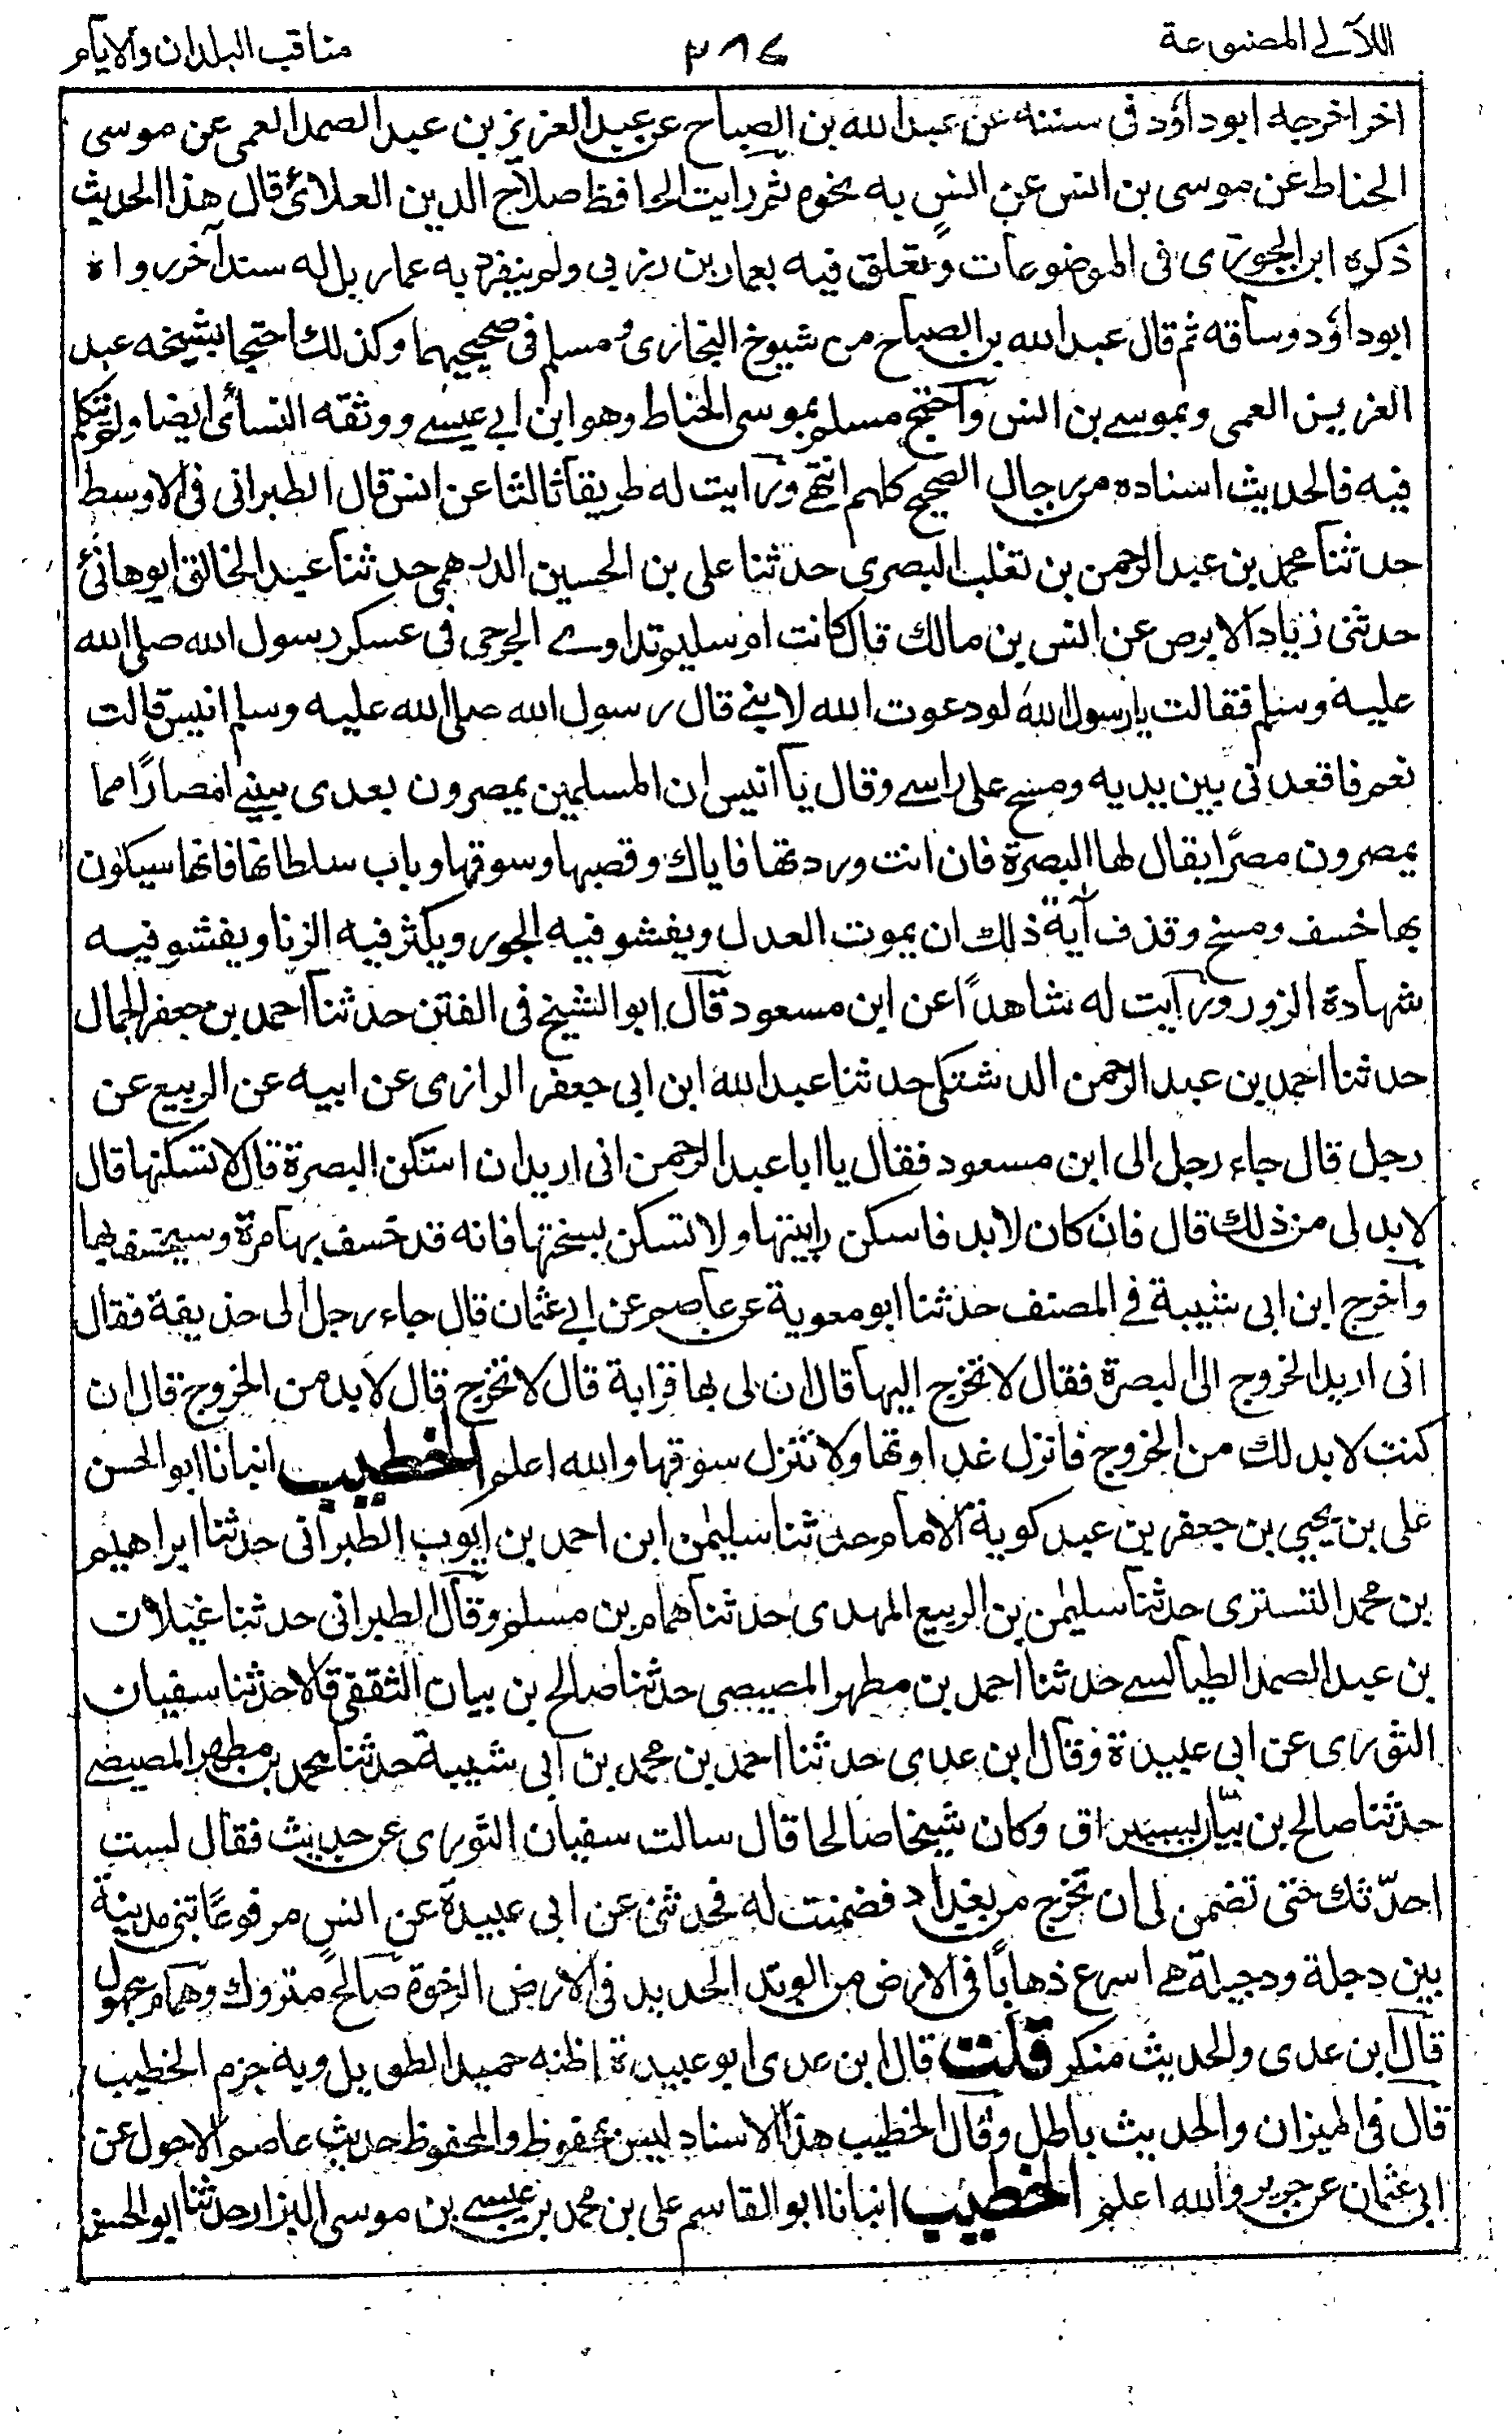 اللآلے المصنوعة
٢٨٤
مناقب البلدان والایام
اخر اخرجه ابوداؤد فی سننه عن عبدالله بن الصباح عن عبدالعزیز بن عبدالصمد العمی عن موسی
الحناط عن موسی بن انس عن انس به نحوه ثم رایت الحافظ صلاح الدین العلائی قال هذا الحدیث
ذکره ابن الجوزی فی الموضوعات وتعلق فیه بعمار بن زربی ولم ینفرد به عمار بل له سند آخر رواه
ابوداؤد وساقه ثم قال عبدالله بن الصباح من شیوخ البخاری ومسلم فی صحیحیهما وکذلک احتجا بشیخه عبد
العزیز العمی وبموسے بن انس وآحتج مسلم بموسی الحناط وهو ابن ابے عیسے ووثقه النسائی ایضا ولم یتکلم
فیه فالحدیث اسناده من رجال الصحیح کلهم انتهے ورآیت له طریقا ثالثا عن انس قال الطبرانی فی الاوسط
حدثنا محمد بن عبدالرحمن بن تغلب البصری حدثنا علی بن الحسین الدرهمی حدثنا عبدالخالق ابوهانئ
حدثنی زیاد الابرص عن انس بن مالک قال کانت ام سلیم تداوے الجرحی فی عسکر رسول الله صلی الله
علیه وسلم فقالت یارسول الله لودعوت الله لابنے قال رسول الله صلی الله علیه وسلم انیس قالت
نعم فاقعدنی بین یدیه ومسح علی راسے وقال یا انیس ان المسلمین یمصرون بعدی بینے امصارًا مما
یمصرون مصرًا یقال لها البصرة فان انت وردتها فایاک وقصبها وسوقها وباب سلطانها فانها سیکون
بها خسف ومسخ وقذف آیة ذلک ان یموت العدل ویفشو فیه الجور ویکثر فیه الزنا ویفشو فیه
شهادة الزور ورآیت له شاهدًا عن ابن مسعود قآل ابوالشیخ فی الفتن حدثنا احمد بن جعفر الجمال
حدثنا احمد بن عبدالرحمن الدشتکی حدثنا عبدالله ابن ابی جعفر الرازی عن ابیه عن الربیع عن
رجل قال جاء رجل الی ابن مسعود فقال یا ابا عبدالرحمن انی ارید ان اسکن البصرة قال لا تسکنها قال
لابد لی من ذلک قال فان کان لابد فاسکن رابیتها ولا تسکن بسبختها فانه قد خسف بها مرة وسیخسف بها
وآخرج ابن ابی شیبة فے المصنف حدثنا ابو معویة عن عاصم عن ابے عثمان قال جاء رجل الی حذیفة فقال
انی ارید الخروج الی البصرة فقال لا تخرج الیها قال ان لی بها قرابة قال لا تخرج قال لابد من الخروج قال ان
کنت لابد لک من الخروج فانزل غداوتها ولا تنزل سوقها والله اعلم الخطیب انبانا ابوالحسن
علی بن یحیی بن جعفر بن عبد کویة الامام حدثنا سلیمن ابن احمد بن ایوب الطبرانی حدثنا ابراهیم
بن محمد التستری حدثنا سلیمن بن الربیع المهدی حدثنا همام بن مسلم وقآل الطبرانی حدثنا غیلان
بن عبدالصمد الطیالسے حدثنا احمد بن مطهر المصیصی حدثنا صالح بن بیان الثقفی قالا حدثنا سفیان
الثوری عن ابی عبیدة وقال ابن عدی حدثنا احمد بن محمد بن ابی شیبة حدثنا محمد بن مطهر المصیصے
حدثنا صالح بن بیّان وکان شیخا صالحا قال سالت سفیان الثوری عن حدیث فقال لست
احدّثک حتی تضمن لی ان تخرج من بغداد فضمنت له فحدثنی عن ابی عبیدة عن انس مرفوعًا تبنی مدینة
بین دجلة ودجیلة هے اسرع ذهابًا فی الارض من الوتد الحدید فی الارض الرخوة صالح متروک وهمام مجهول
قآل ابن عدی والحدیث منکر قلت قال ابن عدی ابوعبیدة اظنه حمید الطویل وبه جزم الخطیب
قال فی المیزان والحدیث باطل وقآل الخطیب هذا الاسناد لیس بمحفوظ والمحفوظ حدیث عاصم الاحول عن
ابی عثمان عن جریر والله اعلم الخطیب انبانا ابوالقاسم علی بن محمد بن عیسے بن موسی البزار حدثنا ابوالحسن